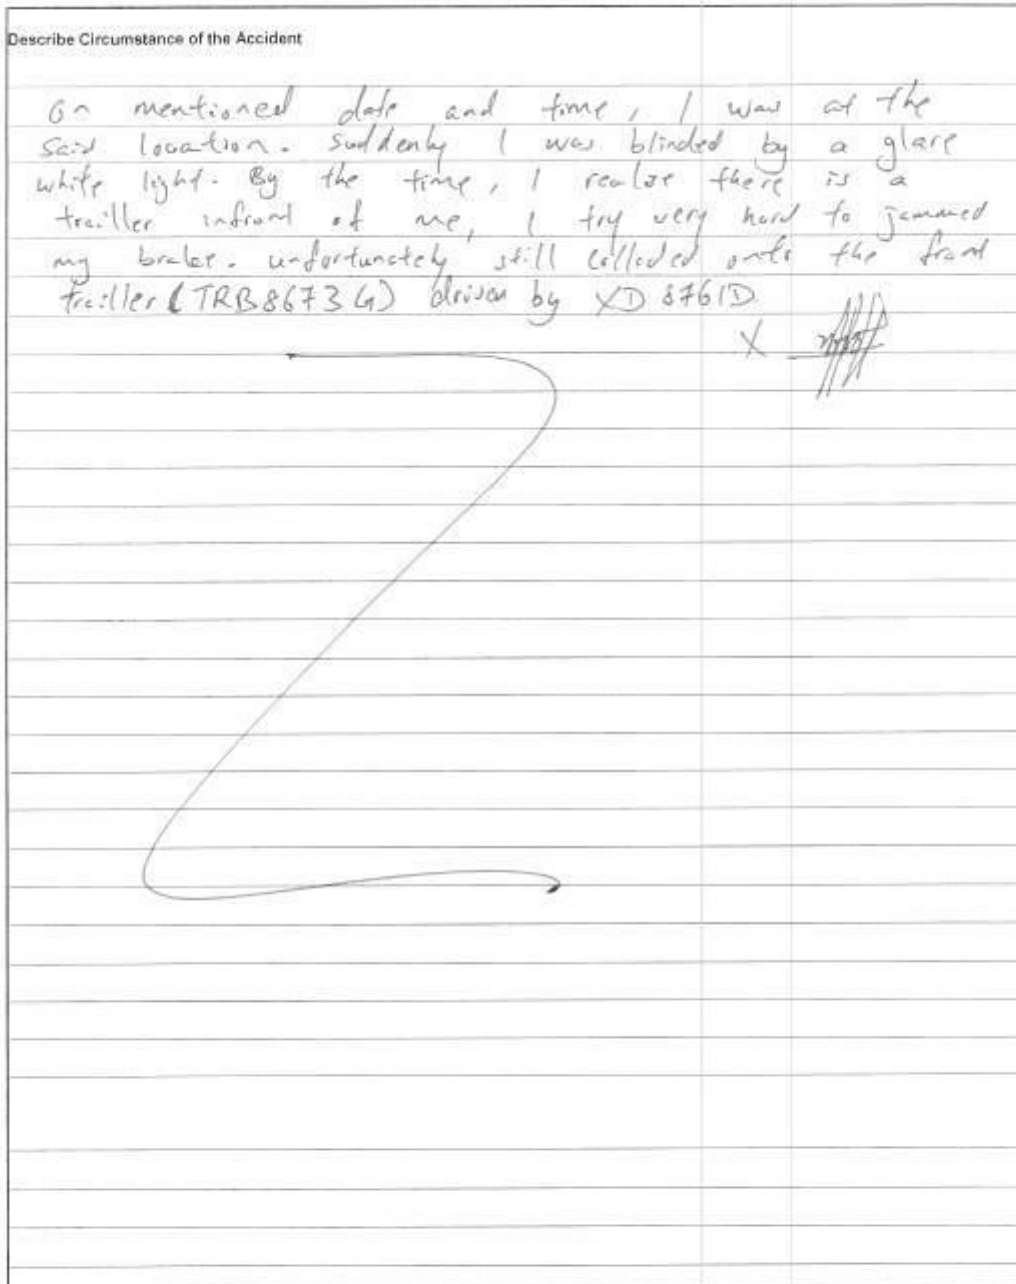 Describe Circumstance of the Accident
On mentioned date and time, I was at the
said location. Suddenly I was blinded by a glare
white light. By the time, I realse there is a
trailler infront of me, I try very hard to jammed
my brake. unfortunately still collided onto the front
trailler (TRB8673G) driven by XD 8761D
X